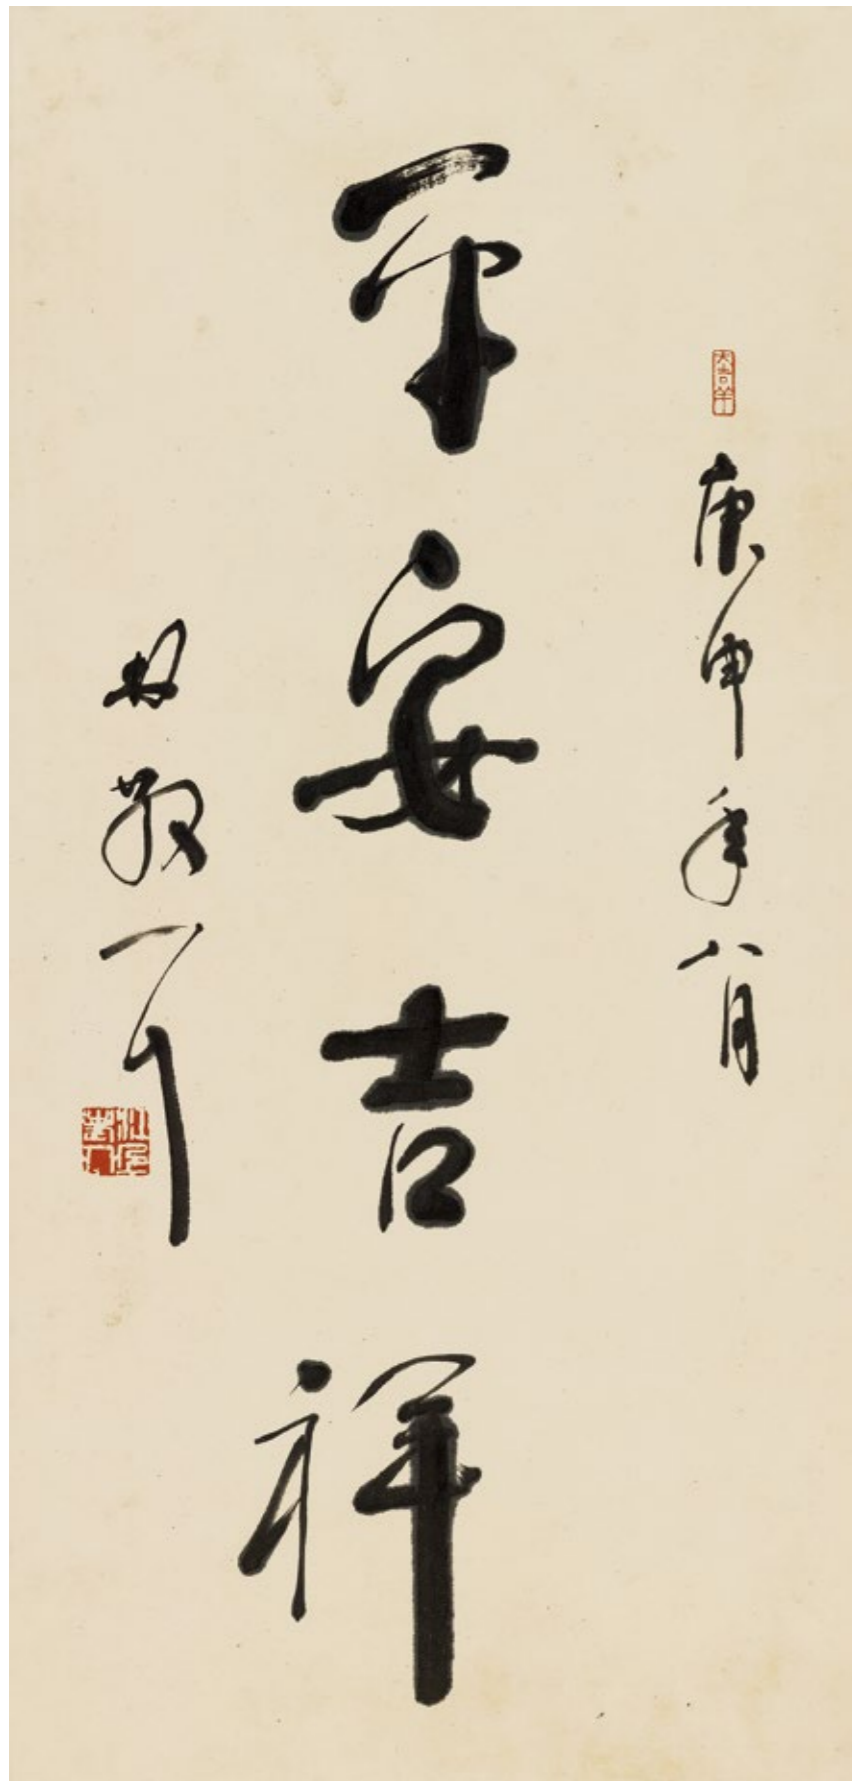 大吉羊
庚申年八月
平安吉祥
林散之